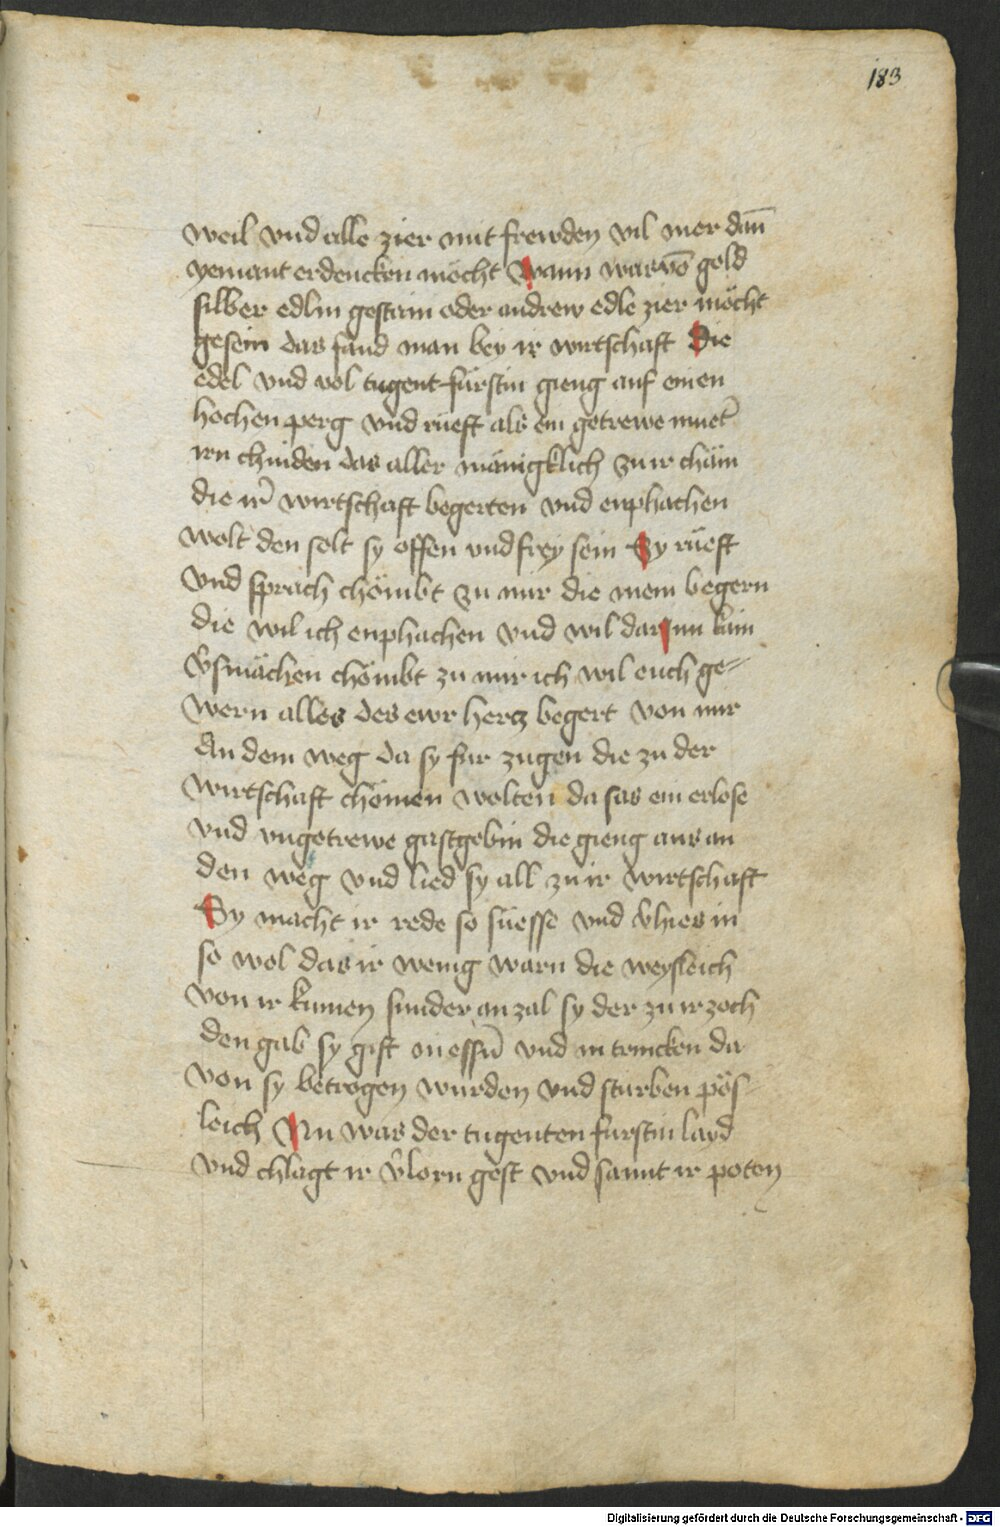 183
weil vnd alle zier mit frewden vil mer dan̄
yemant erdencken möcht Wann warvō gold
silber edlin gestain oder andrew edle zier möcht
gesein das fand man bey ir wirtschaft Die
edel vnd vol tugent fürstin gieng auf einen
hochen perg vnd rüeft als ein getrewe muet̄
irn chinden das aller mänigklich zu ir chäm
die ir̄ wirtschaft begerten vnd enphachen
wolt den solt sy offen vnd frey sein Sy rüeft
vnd sprach chömbt zu mir die mein begern
die wil ich enphachen vnd wil darinn kain
v̄smächen chömbt zu mir ich wil euch ge-
wern alles des ewr hertz begert von mir
An dem weg da sy fur zugen die zu der
wirtschaft chömen wolten da sas ein erlose
vnd vngetrewe gastgebin die gieng aus an
den weg vnd lued sy all zu ir wirtschaft
Sy macht ir rede so süesse vnd v̄hies in
so wol das ir wenig warn die weysleich
von ir kumen sunder an zal sy der zu ir zoch
den gab sy gift in essn̄ vnd in trincken da
von sy betrogen wurden vnd sturben pös-
leich Nu was der tugenten furstin layd
vnd chlagt ir v̄lorn gest vnd sannt ir poten
Digitalisierung gefördert durch die Deutsche Forschungsgemeinschaft - DFG